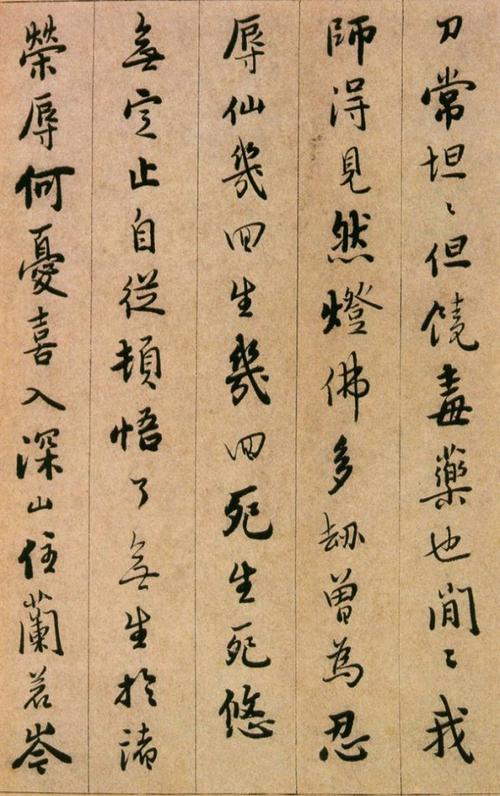 刀常坦〻但饒毒藥也閒〻我
師得見然燈佛多劫曽為忍
辱仙幾回生幾回死生死悠
無定止自從頓悟了無生於諸
榮辱何憂喜入深山住蘭若岑